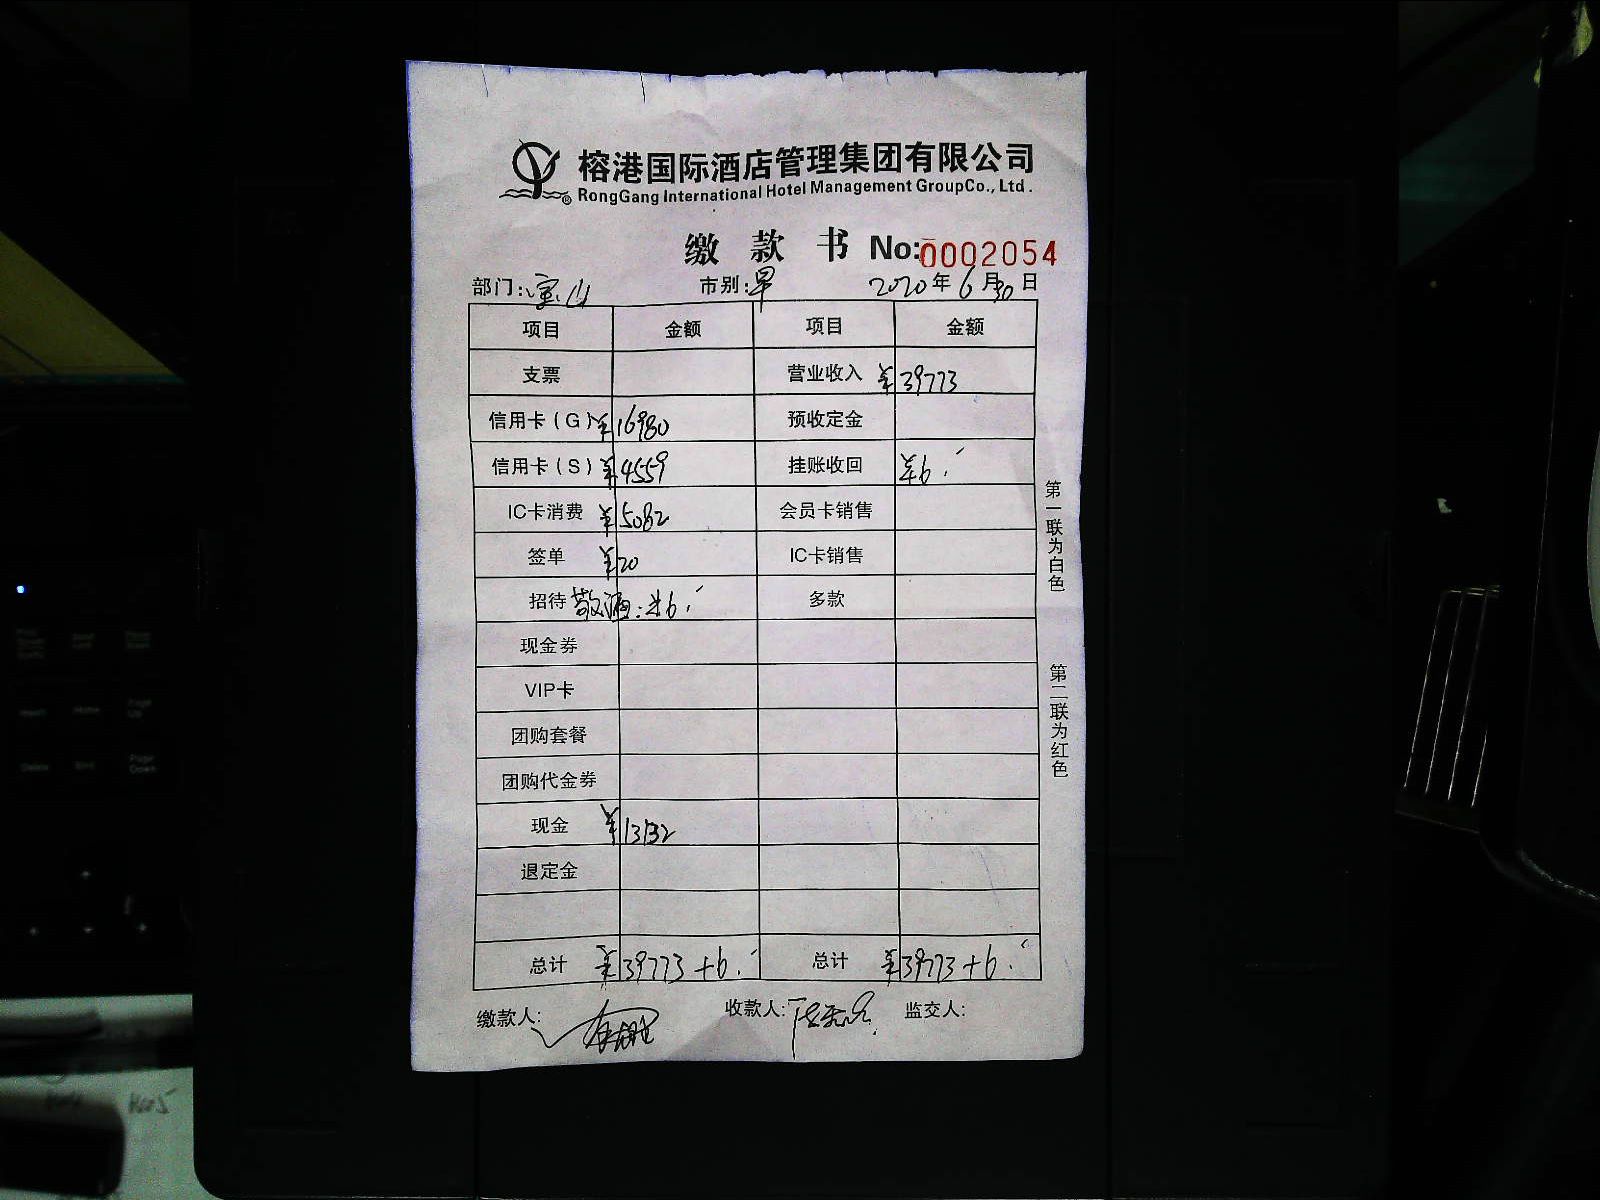 榕港国际酒店管理集团有限公司
RongGang International Hotel Management GroupCo., Ltd.
缴 款 书 No:0002054
部门:宝山 市别:早 2020年6月30日
项目 金额 项目 金额
支票 营业收入 ¥39773
信用卡(G) ¥16980 预收定金
信用卡(S) ¥4559 挂账收回 ¥6.-
IC卡消费 ¥5082 会员卡销售
签单 ¥20 IC卡销售
招待 敬酒:¥6.- 多款
现金券
VIP卡
团购套餐
团购代金券
现金 ¥13132
退定金
总计 ¥39773+6.- 总计 ¥39773+6.-
缴款人: 收款人: 监交人:
第一联为白色
第二联为红色